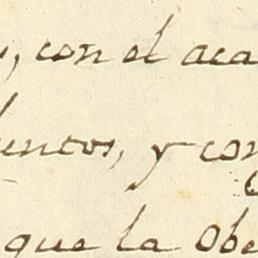 , con el aca
untos, y con
que la Obe